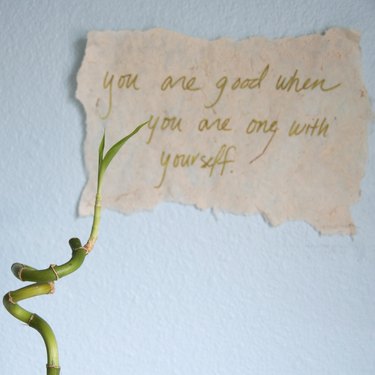 you are good when
you are one with
yourself.